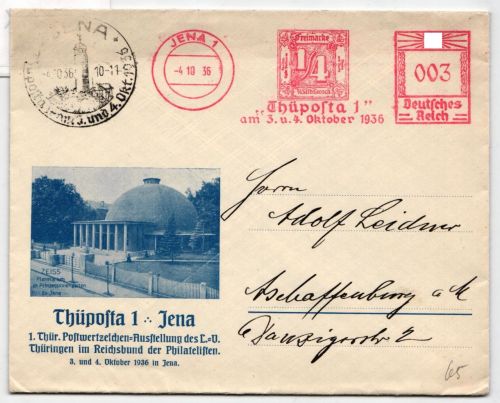 JENA
-4.10.36 10-11
3. und 4. Okt. 1936
JENA 1
-4 10 36
Freimarke
1/4
"Thüposta 1"
am 3. u. 4. Oktober 1936
003
Deutsches
Reich
Herrn
Adolf Leidner
Aschaffenburg a M
Danzigerstr 2
ZEISS
Planetarium
im Prinzessinnengarten
zu Jena
Thüposta 1 ∴ Jena
1. Thür. Postwertzeichen-Ausstellung des L.-V.
Thüringen im Reichsbund der Philatelisten.
3. und 4. Oktober 1936 in Jena.
65